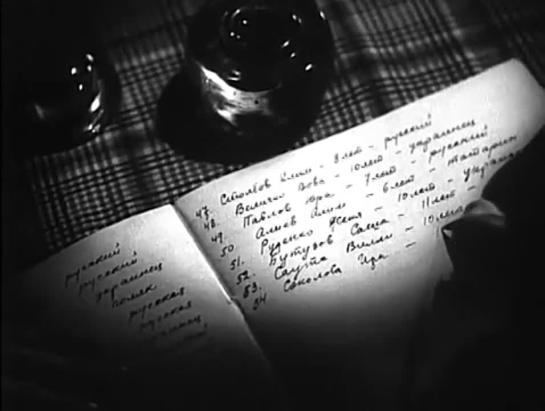 русский
русский
украинец
поляк
русская
русская
47. Столбов Клим - 8 лет - русский
48. Величко Вова - 10 лет - украинец
49. Павлов Юра - 7 лет - русский
50. Алиев Алим - 6 лет - татарин
51. Руденко Женя - 10 лет -
52. Бутузов Саша - 11 лет -
53. Саута Вилли - 10 лет
54 Соколова Ира -